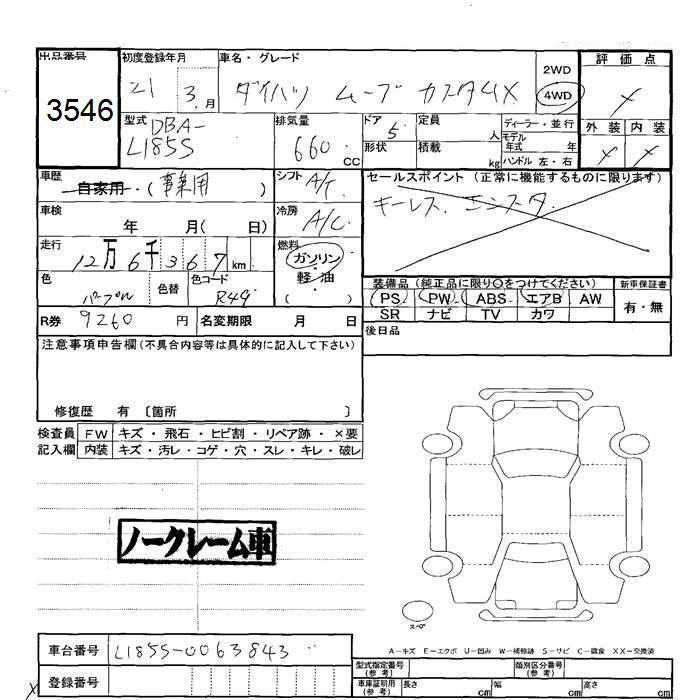 出品番号 初度登録年月 車名・グレード 評価点
3546 21 3.月 ダイハツ ムーブ カスタムX 2WD 4WD
型式 DBA-L185S 排気量 660 CC ドア 5 定員 人 ディーラー・並行 外装 内装
形状 積載 kg モデル年式 年 ハンドル 左・右
車歴 自家用・(事業用) シフト A/T セールスポイント (正常に機能するものに限ります)
車検 年 月( 日) 冷房 A/C キーレス. エンスタ.
走行 12万6千367 km 燃料 ガソリン・軽油 ( )
色 パープル 色替 色コード R49 装備品 (純正品に限り○をつけてください) 新車保証書
PS PW ABS エアB AW 有・無
SR ナビ TV カワ
R券 9260 円 名変期限 月 日 後日品
注意事項申告欄 (不具合内容等は具体的に記入して下さい)
修復歴 有 〔箇所 〕
検査員記入欄 FW キズ・飛石・ヒビ割・リペア跡・×要
内装 キズ・汚レ・コゲ・穴・スレ・キレ・破レ
ノークレーム車
スペア
A−キズ E−エクボ U−凹み W−補修跡 S−サビ C−腐食 XX−交換済
車台番号 L185S-0063843
登録番号
型式指定番号(参考) 類別区分番号(参考)
車庫証明用(参考) 長さ cm 幅 cm 高さ cm